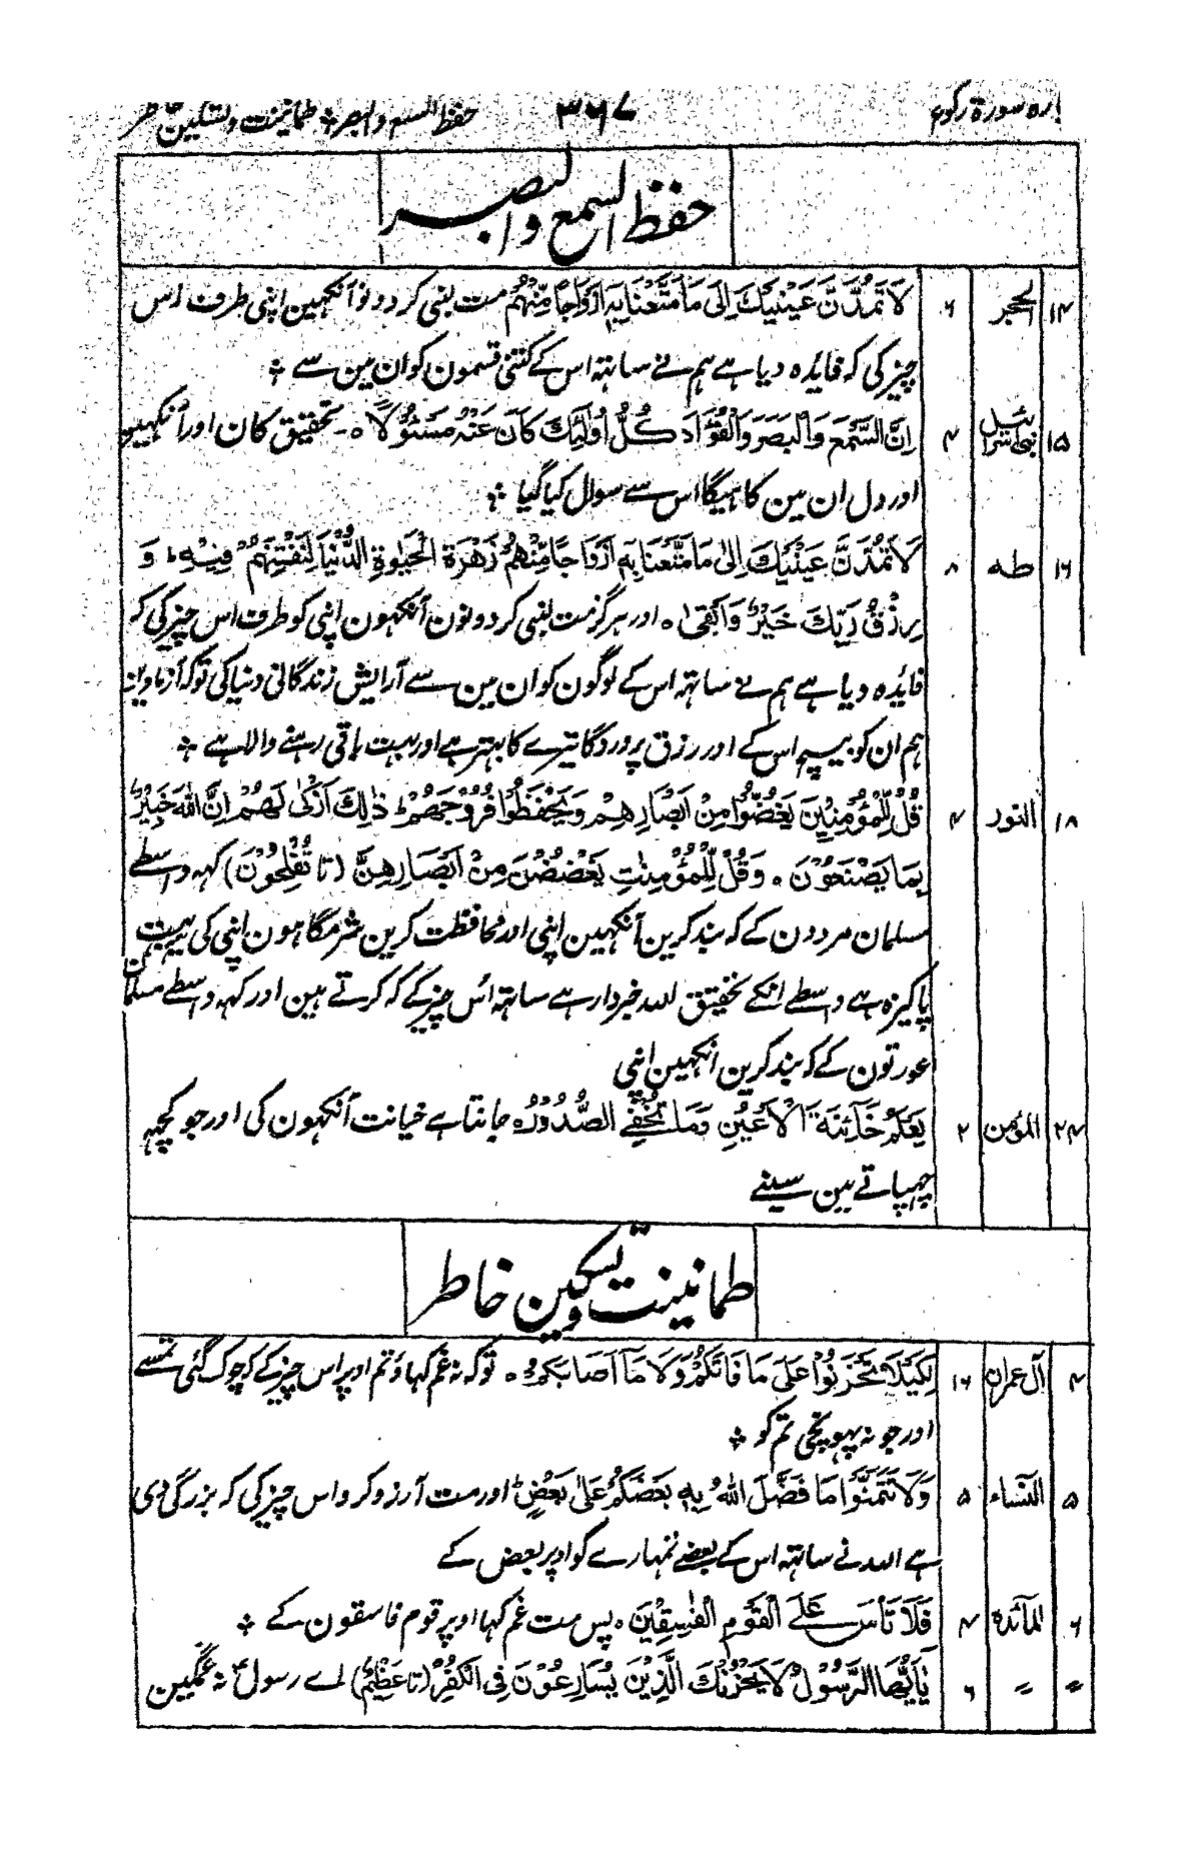 پارہ سورۃ رکوع ۳۶۷ حفظ السمع والبصر ؞ طمانینت وتسکین خاطر
حفظ السمع والبصر
۱۴ الحجر ۶ لَا تَمُدَّنَّ عَيْنَيْكَ اِلٰى مَا مَتَّعْنَا بِهٖ اَزْوَاجًا مِّنْهُمْ مت لنبی کر دونو آنکہین اپنی طرف اس
چیز کی کہ فایدہ دیا ہے ہم نے ساتہہ اس کے کتنی قسمون کو ان مین سے ؞
۱۵ بنی اسرائیل ۴ اِنَّ السَّمْعَ وَالْبَصَرَ وَالْفُؤَادَ كُلُّ اُولٰٓئِكَ كَانَ عَنْهُ مَسْئُوْلًا ہ۔ تحقیق کان اور آنکہین
اور دل ان مین کا ہیگا اس سے سوال کیا گیا ؞
۱۶ طه ۸ لَا تَمُدَّنَّ عَيْنَيْكَ اِلٰى مَا مَتَّعْنَا بِهٖ اَزْوَاجًا مِّنْهُمْ زَهْرَةَ الْحَيٰوةِ الدُّنْيَا لِنَفْتِنَهُمْ فِيْهِ ط وَ
رِزْقُ رَبِّكَ خَيْرٌ وَّاَبْقٰى ہ اور ہرگز مت لنبی کر دونون آنکہون اپنی کو طرف اس چیز کی کہ
فایدہ دیا ہے ہم نے ساتہہ اس کے لوگون کو ان مین سے آرایش زندگانی دنیا کی توکہ آزماوین
ہم ان کو بیچ اس کے اور رزق پروردگا تیرے کا بہتر ہے اور بہت باقی رہنے والا ہے ؞
۱۸ النور ۴ قُلْ لِّلْمُؤْمِنِيْنَ يَغُضُّوْا مِنْ اَبْصَارِهِمْ وَيَحْفَظُوْا فُرُوْجَهُمْ ط ذٰلِكَ اَزْكٰى لَهُمْ اِنَّ اللّٰهَ خَبِيْرٌۢ
بِمَا يَصْنَعُوْنَ ہ وَقُلْ لِّلْمُؤْمِنٰتِ يَغْضُضْنَ مِنْ اَبْصَارِهِنَّ (تا تُفْلِحُوْنَ) کہہ واسطے
مسلمان مردون کے کہ بند کرین آنکہین اپنی اور محافظت کرین شرمگاہون اپنی کی یہ بہت
پاکیزہ ہے واسطے انکے تحقیق اللہ خبردار ہے ساتہہ اُس چیز کے کہ کرتے ہین اور کہہ واسطے مسلمان
عورتون کے کہ بند کرین انکہین اپنی
۲۴ المؤمن ۲ يَعْلَمُ خَآئِنَةَ الْاَعْيُنِ وَمَا تُخْفِي الصُّدُوْرُ ہ جانتا ہے خیانت آنکہون کی اور جو کچہہ
چہپاتے ہین سینے
طمانینت وتسکین خاطر
۴ آل عمران ۱۶ لِكَيْلَا تَحْزَنُوْا عَلٰى مَا فَاتَكُمْ وَلَا مَآ اَصَابَكُمْ ہ توکہ نہ غم کہاؤ تم اوپر اس چیز کے کہ چوک گئی تمسے
اور جو نہ پہونچی تم کو ؞
۵ النساء ۵ وَلَا تَتَمَنَّوْا مَا فَضَّلَ اللّٰهُ بِهٖ بَعْضَكُمْ عَلٰى بَعْضٍ ط اور مت آرزو کرو اس چیز کی کہ بزرگی دی
ہے اللہ نے ساتہہ اس کے بعضے تمہارے کو اوپر بعض کے
۶ المآئدة ۴ فَلَا تَاْسَ عَلَى الْقَوْمِ الْفٰسِقِيْنَ ہ پس مت غم کہا اوپر قوم فاسقون کے ؞
〃 〃 ۶ يٰٓاَيُّهَا الرَّسُوْلُ لَا يَحْزُنْكَ الَّذِيْنَ يُسَارِعُوْنَ فِى الْكُفْرِ (تا عَظِيْمٌ) اے رسول نہ غمگین